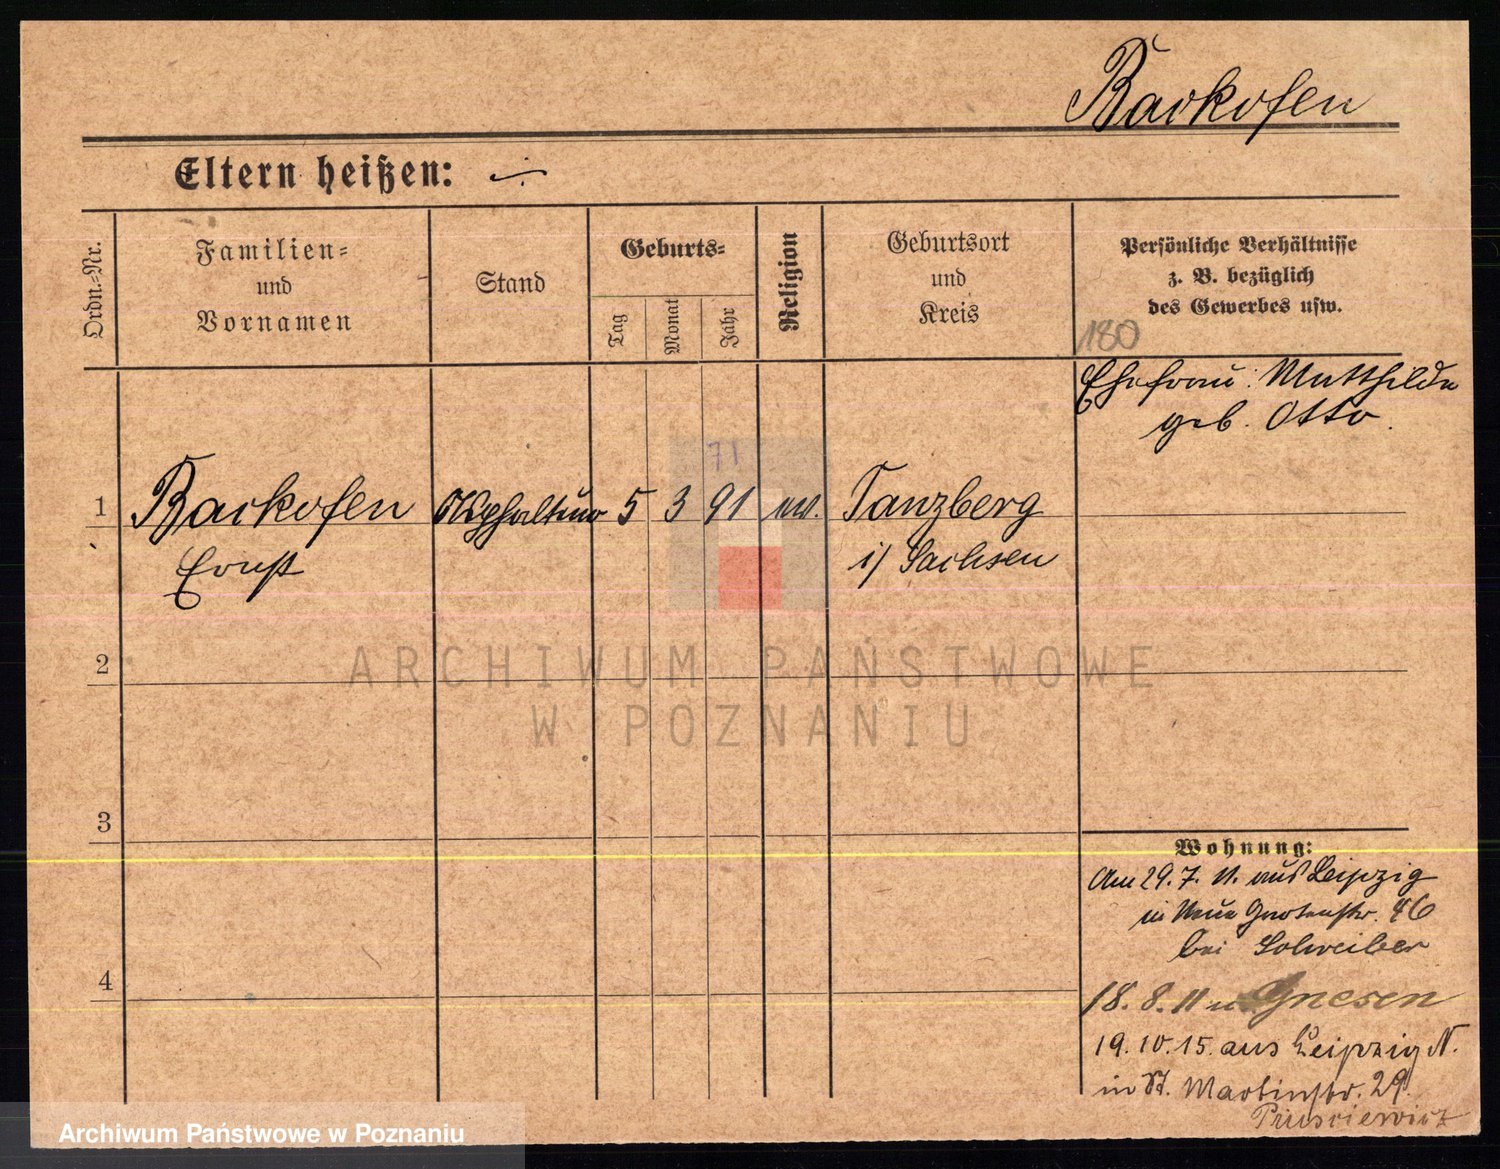 Backofen
Eltern heißen: ÷
Ordn.-Nr.
Familien-
und
Vornamen
Stand
Geburts-
Tag
Monat
Jahr
Religion
Geburtsort
und
Kreis
Persönliche Verhältnisse
z. B. bezüglich
des Gewerbes usw.
180
Ehefrau: Matthilde
geb. Otto.
71
1 Backofen Asphalteur 5 3 91 ev. Tanzberg
Ernst i/ Sachsen
2
3
4
ARCHIWUM PAŃSTWOWE
W POZNANIU
Wohnung:
Am 29.7.11. aus Leipzig
in Neue Gartenstr. 46
bei Schreiber
18.8.11 n. Gnesen
19.10.15. aus Leipzig N.
in St. Martinstr. 29
Archiwum Państwowe w Poznaniu